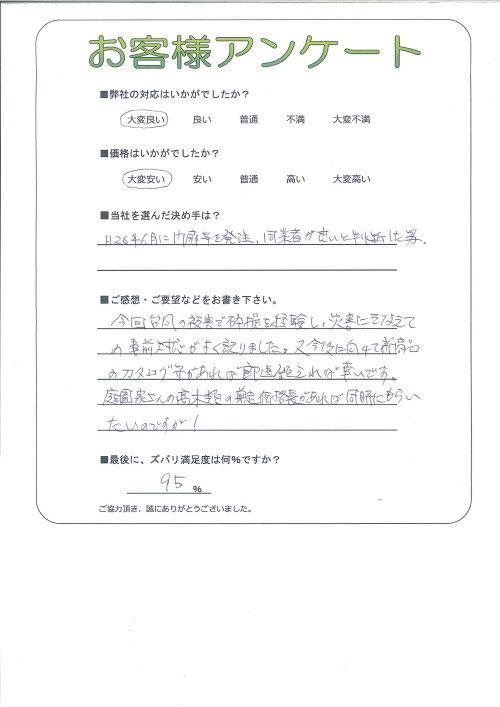 お客様アンケート
■弊社の対応はいかがでしたか？
大変良い 良い 普通 不満 大変不満
■価格はいかがでしたか？
大変安い 安い 普通 高い 大変高い
■当社を選んだ決め手は？
H26年6月に門扉等を発注、同業者が良いと判断した為。
■ご感想・ご要望などをお書き下さい。
今回台風の被害で破損を経験し、災害にそなえて
の事前対応がよく 。又今後に向けて新商品
のカタログ等があれば 幸いです。
庭園 の高木類の 価格表があれば同時にもらい
たいのですが！
■最後に、ズバリ満足度は何％ですか？
95 %
ご協力頂き、誠にありがとうございました。